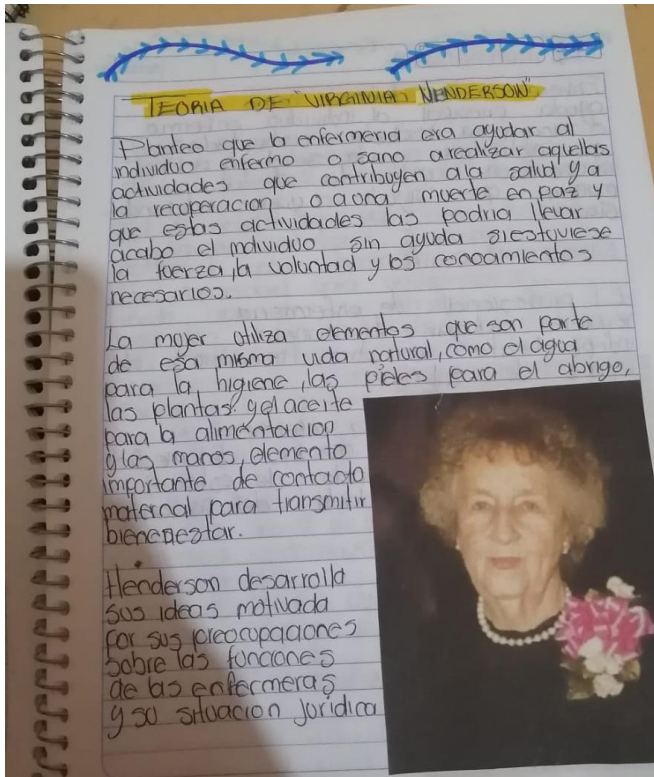 TEORIA DE "VIRGINIA NENDERSON"
Planteo que la enfermeria era ayudar al
individuo enfermo o sano a realizar aquellas
actividades que contribuyen ala salud y a
la recuperacion o auna muerte en paz y
que estas actividades las podria llevar
acabo el individuo sin ayuda si estuviese
la fuerza, la voluntad y los conocimientos
necesarios.
La mujer utiliza elementos que son parte
de esa misma vida natural, como el agua
para la higiene, las pieles para el abrigo,
las plantas y el aceite
para la alimentacion
y las manos, elemento
importante de contacto
maternal para transmitir
bienestar.
Henderson desarrolla
sus ideas motivada
por sus preocupaciones
sobre las funciones
de las enfermeras
y su situacion juridica